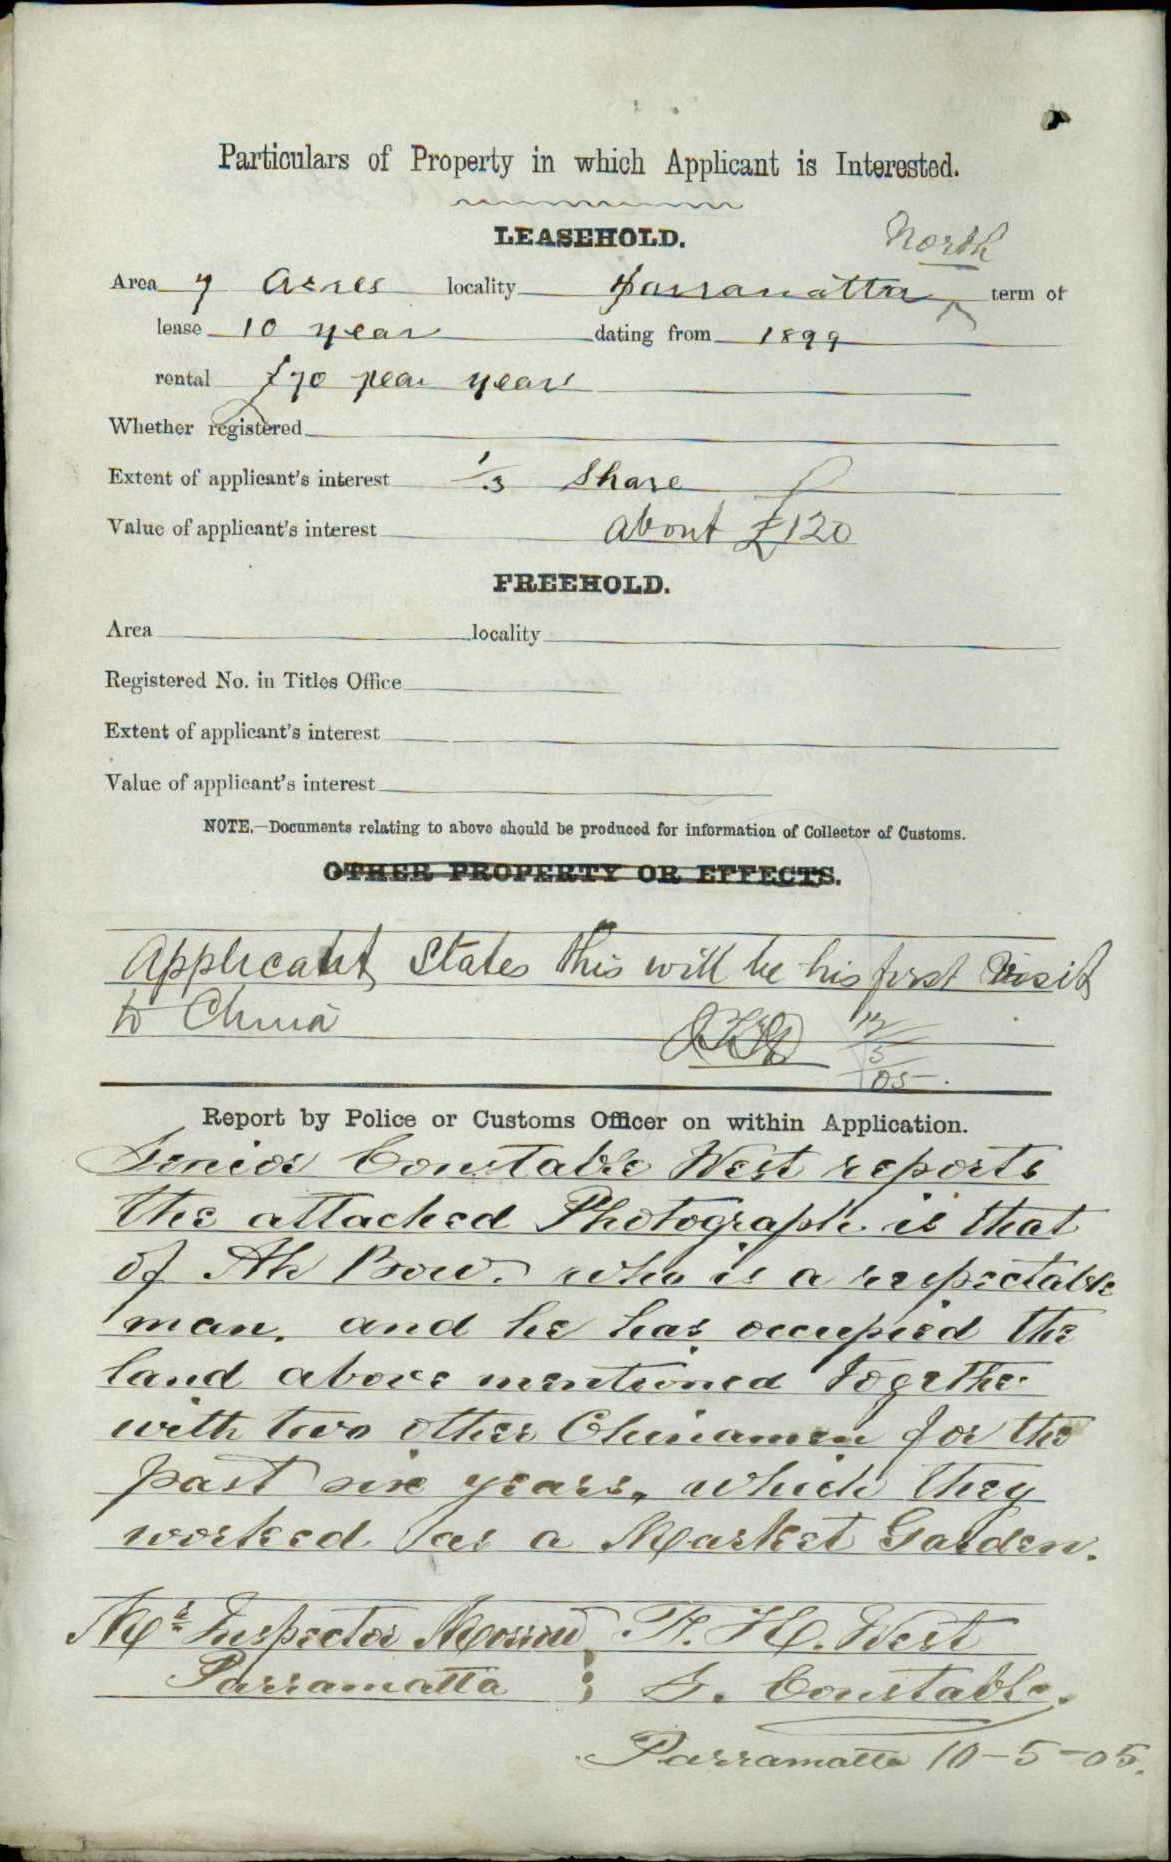 Particulars of Property in which Applicant is Interested.
LEASEHOLD.
North
Area 7 Acres locality Parramatta term of
lease 10 year dating from 1899
rental £70 pear year
Whether registered
Extent of applicant's interest 1/3 Share
Value of applicant's interest about £120
FREEHOLD.
Area locality
Registered No. in Titles Office
Extent of applicant's interest
Value of applicant's interest
NOTE.—Documents relating to above should be produced for information of Collector of Customs.
OTHER PROPERTY OR EFFECTS.
Applicant States this will be his first visit
to China
12/5/05
Report by Police or Customs Officer on within Application.
Senior Constable West reports
the attached Photograph is that
of Ah Bow. who is a respectable
man. and he has occupied the
land above mentioned together
with two other Chinamen for the
past six years, which they
worked as a Market Garden.
Mr Inspector F. H. West
Parramatta S. Constable.
Parramatta 10-5-05.